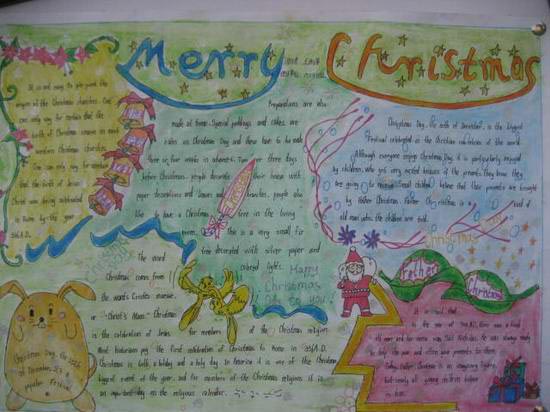 Merry Christmas
It is not easy to pin point the
origin of the Christmas charities. One
can only say for certain that the
birth of Christmas
Western Christmas churches.
can only say for certain
that the birth of Jesus
Christ was being celebrated
in Rome by the year
336A.D.
Preparations are also
made at home. Special puddings and cakes are
eaten on Christmas Day and these have to be made
three or four weeks in advance. Two or three days
before Christmas, people decorate their house with
paper decorations and leaves and branches. people also
like to have a Christmas tree in the living
room. This is a very small fir
tree decorated with silver paper and
colored lights.
Christmas Day, the 25th of December, is the biggest
Festival celebrated in the Christian countries of the world.
Although everyone enjoys Christmas Day, it is particularly enjoyed
by children, who get very excited because of the presents they know they
are going to receive. Small children believe that their presents are brought
by Father Christmas. Father Christmas is a kind of
old man who, the children are told.
Christmas
The word
Christmas comes from
the words Cristes maesse,
or "Christ's Mass." Christmas
is the celebration of Jesus for members of the Christian religion.
Most historians peg the first celebration of Christmas to Rome in 336A.D.
Christmas is both a holiday and a holy day. In America it is one of the
biggest event of the year, and for members of the Christian religions it is
an important day on the religious calendar.
Happy
Christmas
Day to you!
Christmas Day, the 25th
of December, is a
popular Festival
Father Christmas
It is said that
in the year of there was a kind
old man and her name was Saint Nicholas. He was always ready
to help the poor and often gave presents for them.
Today Father Christmas is an imaginary figure,
but nearly all young children believe
in him.